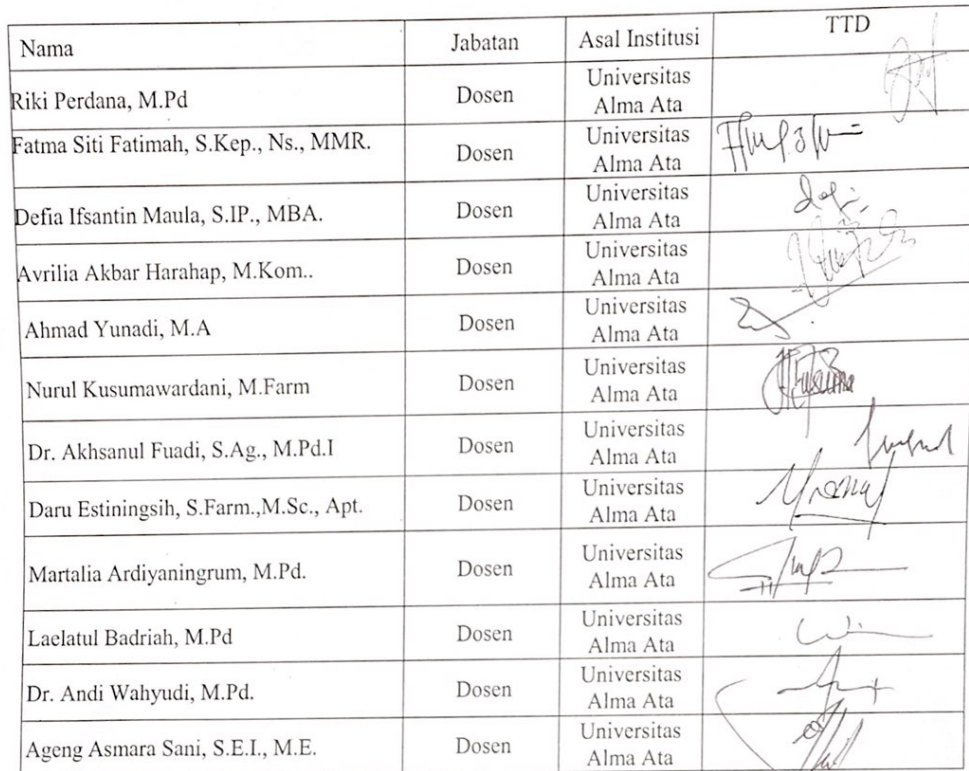 Nama Jabatan Asal Institusi TTD
Riki Perdana, M.Pd Dosen Universitas Alma Ata
Fatma Siti Fatimah, S.Kep., Ns., MMR. Dosen Universitas Alma Ata
Defia Ifsantin Maula, S.IP., MBA. Dosen Universitas Alma Ata
Avrilia Akbar Harahap, M.Kom.. Dosen Universitas Alma Ata
Ahmad Yunadi, M.A Dosen Universitas Alma Ata
Nurul Kusumawardani, M.Farm Dosen Universitas Alma Ata
Dr. Akhsanul Fuadi, S.Ag., M.Pd.I Dosen Universitas Alma Ata
Daru Estiningsih, S.Farm.,M.Sc., Apt. Dosen Universitas Alma Ata
Martalia Ardiyaningrum, M.Pd. Dosen Universitas Alma Ata
Laelatul Badriah, M.Pd Dosen Universitas Alma Ata
Dr. Andi Wahyudi, M.Pd. Dosen Universitas Alma Ata
Ageng Asmara Sani, S.E.I., M.E. Dosen Universitas Alma Ata